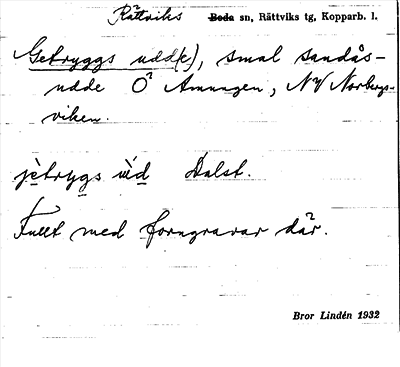 Rättviks Boda sn, Rättviks tg, Kopparb. l.
Getryggs udd(e), smal sandås-
udde Ö Amungen, NV Norbergs-
viken.
jètrygs ùd Dalst.
Fullt med forngravar där.
Bror Lindén 1932